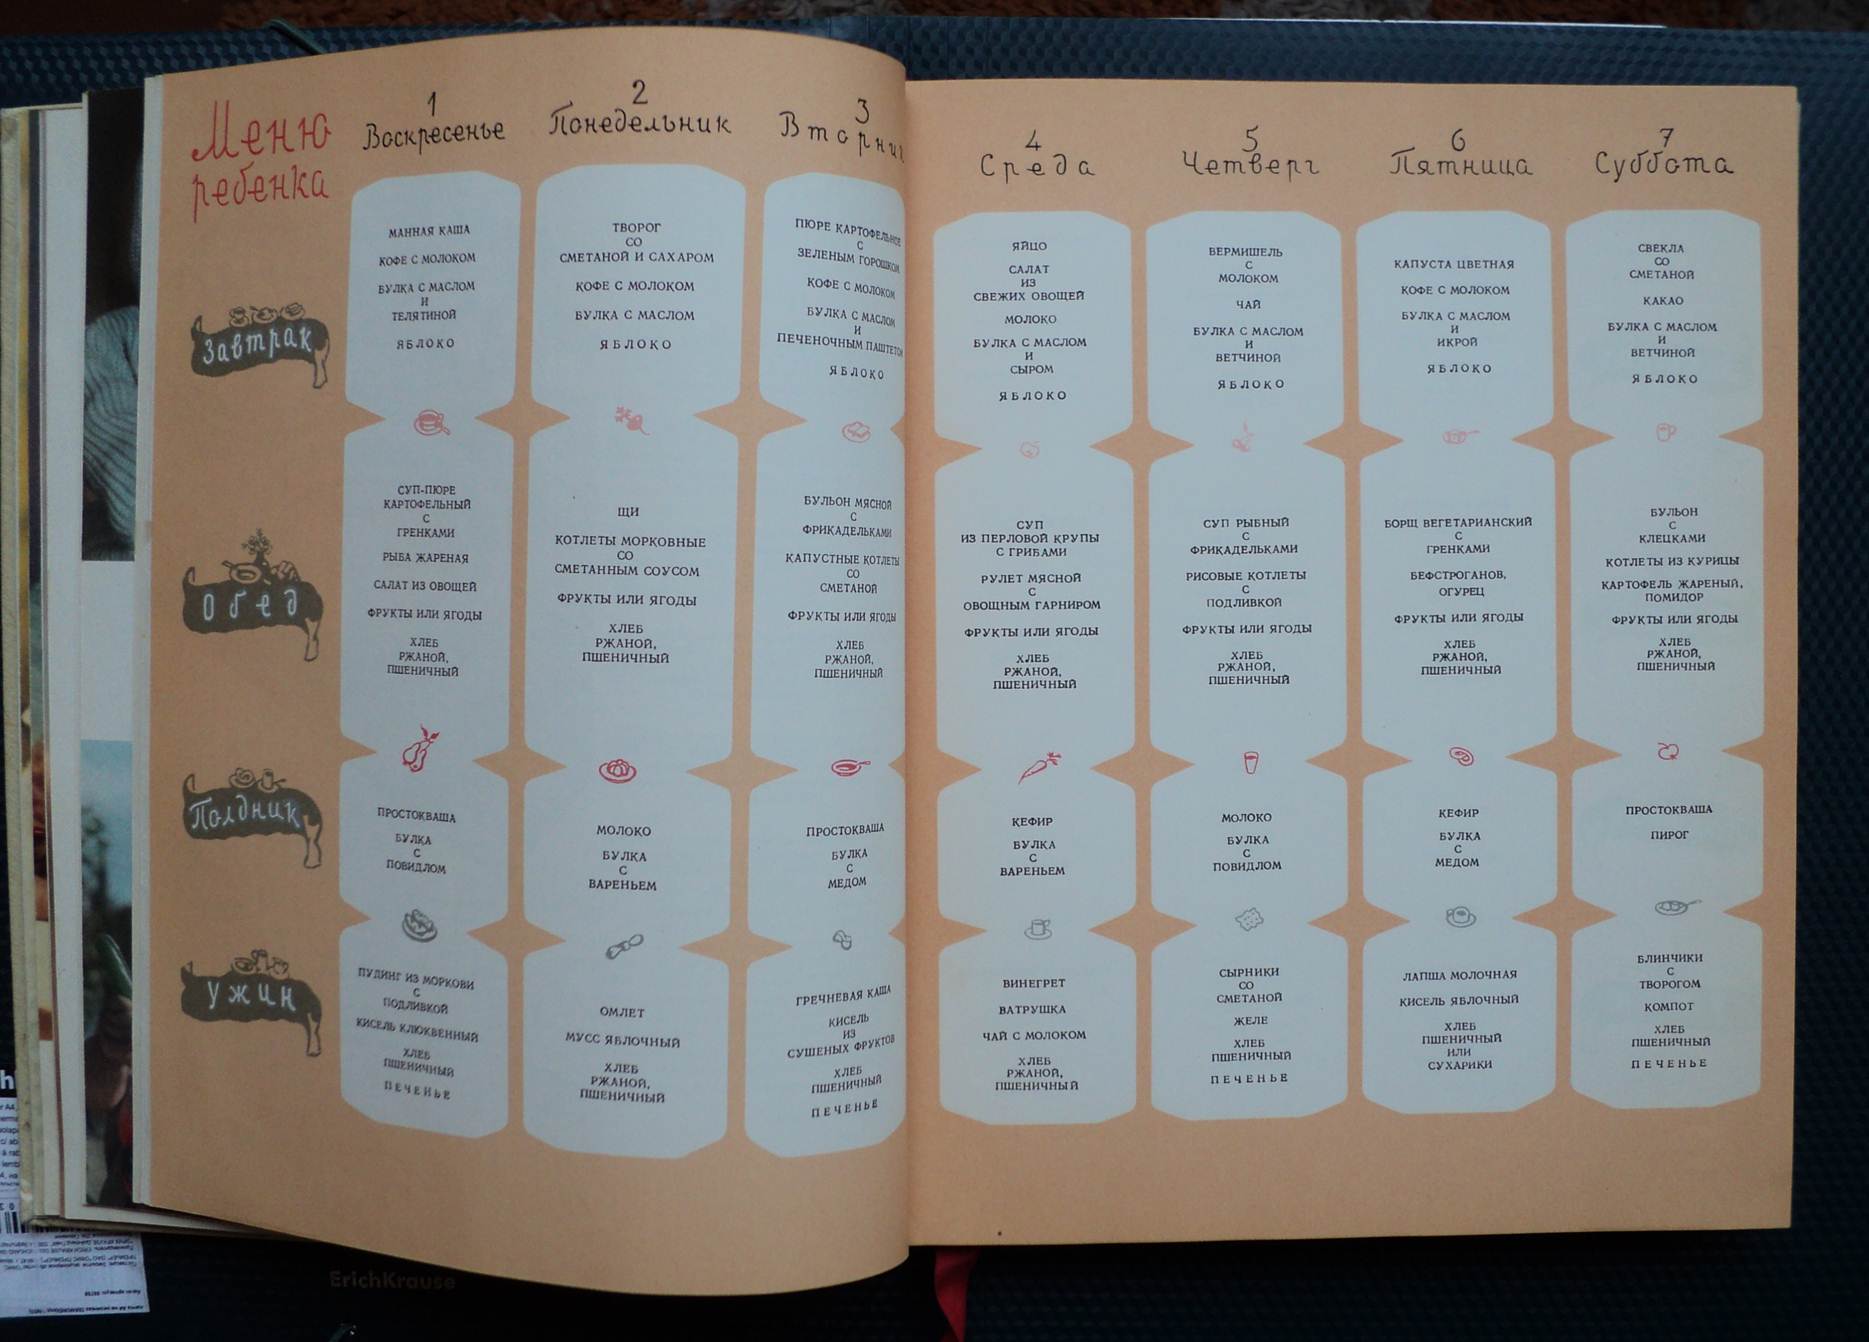 Меню
ребенка
1
Воскресенье
2
Понедельник
3
Вторник
4
Среда
5
Четверг
6
Пятница
7
Суббота
Завтрак
МАННАЯ КАША
КОФЕ С МОЛОКОМ
БУЛКА С МАСЛОМ
И
ТЕЛЯТИНОЙ
ЯБЛОКО
ТВОРОГ
СО
СМЕТАНОЙ И САХАРОМ
КОФЕ С МОЛОКОМ
БУЛКА С МАСЛОМ
ЯБЛОКО
ПЮРЕ КАРТОФЕЛЬНОЕ
С
ЗЕЛЕНЫМ ГОРОШКОМ
КОФЕ С МОЛОКОМ
БУЛКА С МАСЛОМ
И
ПЕЧЕНОЧНЫМ ПАШТЕТОМ
ЯБЛОКО
ЯЙЦО
САЛАТ
ИЗ
СВЕЖИХ ОВОЩЕЙ
МОЛОКО
БУЛКА С МАСЛОМ
И
СЫРОМ
ЯБЛОКО
ВЕРМИШЕЛЬ
С
МОЛОКОМ
ЧАЙ
БУЛКА С МАСЛОМ
И
ВЕТЧИНОЙ
ЯБЛОКО
КАПУСТА ЦВЕТНАЯ
КОФЕ С МОЛОКОМ
БУЛКА С МАСЛОМ
И
ИКРОЙ
ЯБЛОКО
СВЕКЛА
СО
СМЕТАНОЙ
КАКАО
БУЛКА С МАСЛОМ
И
ВЕТЧИНОЙ
ЯБЛОКО
Обед
СУП-ПЮРЕ
КАРТОФЕЛЬНЫЙ
С
ГРЕНКАМИ
РЫБА ЖАРЕНАЯ
САЛАТ ИЗ ОВОЩЕЙ
ФРУКТЫ ИЛИ ЯГОДЫ
ХЛЕБ
РЖАНОЙ,
ПШЕНИЧНЫЙ
ЩИ
КОТЛЕТЫ МОРКОВНЫЕ
СО
СМЕТАННЫМ СОУСОМ
ФРУКТЫ ИЛИ ЯГОДЫ
ХЛЕБ
РЖАНОЙ,
ПШЕНИЧНЫЙ
БУЛЬОН МЯСНОЙ
С
ФРИКАДЕЛЬКАМИ
КАПУСТНЫЕ КОТЛЕТЫ
СО
СМЕТАНОЙ
ФРУКТЫ ИЛИ ЯГОДЫ
ХЛЕБ
РЖАНОЙ,
ПШЕНИЧНЫЙ
СУП
ИЗ ПЕРЛОВОЙ КРУПЫ
С ГРИБАМИ
РУЛЕТ МЯСНОЙ
С
ОВОЩНЫМ ГАРНИРОМ
ФРУКТЫ ИЛИ ЯГОДЫ
ХЛЕБ
РЖАНОЙ,
ПШЕНИЧНЫЙ
СУП РЫБНЫЙ
С
ФРИКАДЕЛЬКАМИ
РИСОВЫЕ КОТЛЕТЫ
С
ПОДЛИВКОЙ
ФРУКТЫ ИЛИ ЯГОДЫ
ХЛЕБ
РЖАНОЙ,
ПШЕНИЧНЫЙ
БОРЩ ВЕГЕТАРИАНСКИЙ
С
ГРЕНКАМИ
БЕФСТРОГАНОВ,
ОГУРЕЦ
ФРУКТЫ ИЛИ ЯГОДЫ
ХЛЕБ
РЖАНОЙ,
ПШЕНИЧНЫЙ
БУЛЬОН
С
КЛЕЦКАМИ
КОТЛЕТЫ ИЗ КУРИЦЫ
КАРТОФЕЛЬ ЖАРЕНЫЙ,
ПОМИДОР
ФРУКТЫ ИЛИ ЯГОДЫ
ХЛЕБ
РЖАНОЙ,
ПШЕНИЧНЫЙ
Полдник
ПРОСТОКВАША
БУЛКА
С
ПОВИДЛОМ
МОЛОКО
БУЛКА
С
ВАРЕНЬЕМ
ПРОСТОКВАША
БУЛКА
С
МЕДОМ
КЕФИР
БУЛКА
С
ВАРЕНЬЕМ
МОЛОКО
БУЛКА
С
ПОВИДЛОМ
КЕФИР
БУЛКА
С
МЕДОМ
ПРОСТОКВАША
ПИРОГ
Ужин
ПУДИНГ ИЗ МОРКОВИ
С
ПОДЛИВКОЙ
КИСЕЛЬ КЛЮКВЕННЫЙ
ХЛЕБ
ПШЕНИЧНЫЙ
ПЕЧЕНЬЕ
ОМЛЕТ
МУСС ЯБЛОЧНЫЙ
ХЛЕБ
РЖАНОЙ,
ПШЕНИЧНЫЙ
ГРЕЧНЕВАЯ КАША
КИСЕЛЬ
ИЗ
СУШЕНЫХ ФРУКТОВ
ХЛЕБ
ПШЕНИЧНЫЙ
ПЕЧЕНЬЕ
ВИНЕГРЕТ
ВАТРУШКА
ЧАЙ С МОЛОКОМ
ХЛЕБ
РЖАНОЙ,
ПШЕНИЧНЫЙ
СЫРНИКИ
СО
СМЕТАНОЙ
ЖЕЛЕ
ХЛЕБ
ПШЕНИЧНЫЙ
ПЕЧЕНЬЕ
ЛАПША МОЛОЧНАЯ
КИСЕЛЬ ЯБЛОЧНЫЙ
ХЛЕБ
ПШЕНИЧНЫЙ
ИЛИ
СУХАРИКИ
БЛИНЧИКИ
С
ТВОРОГОМ
КОМПОТ
ХЛЕБ
ПШЕНИЧНЫЙ
ПЕЧЕНЬЕ
ErichKrause